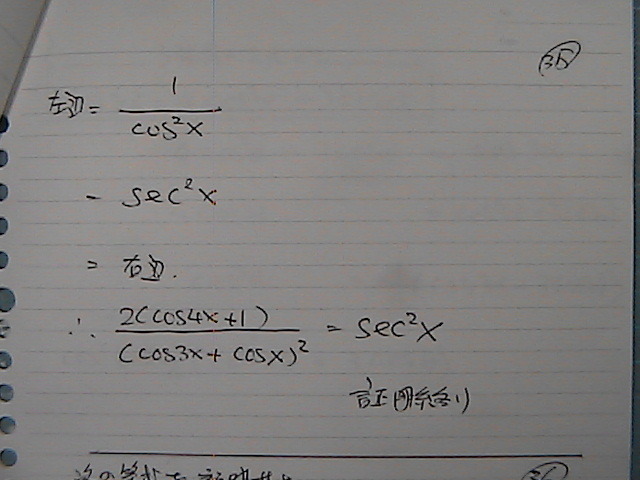 35
左辺 = 1/cos²x
= sec²x
= 右辺.
∴ 2(cos4x+1)/(cos3x+cosx)² = sec²x
証明終り
次の等式を証明せよ
36